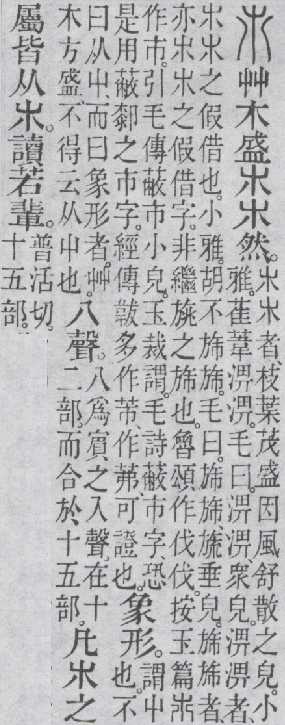 𣎵艸木盛𣎵𣎵然。
𣎵𣎵者、枝葉茂盛因風舒散之皃。小
雅。萑葦淠淠。毛曰。淠淠眾皃。淠淠者、
𣎵𣎵之假借也。小雅。胡不旆旆。毛曰。旆旆、旒垂皃。旆旆者、
亦𣎵𣎵之假借字。非繼旐之旆也。魯頌作伐伐。按玉篇𣎵
作巿。引毛傳蔽巿小皃。玉裁謂毛詩蔽巿字、恐
是用蔽厀之巿字。經傳韍多作芾、作茀。可證也。
象形。
謂中
也。不
曰从屮、而曰象形者。艸
木方盛、不得云从屮也。
八聲。
八爲賓之入聲。在十
二部。而合於十五部。
凡𣎵之
屬皆从𣎵。讀若輩。
普活切。
十五部。